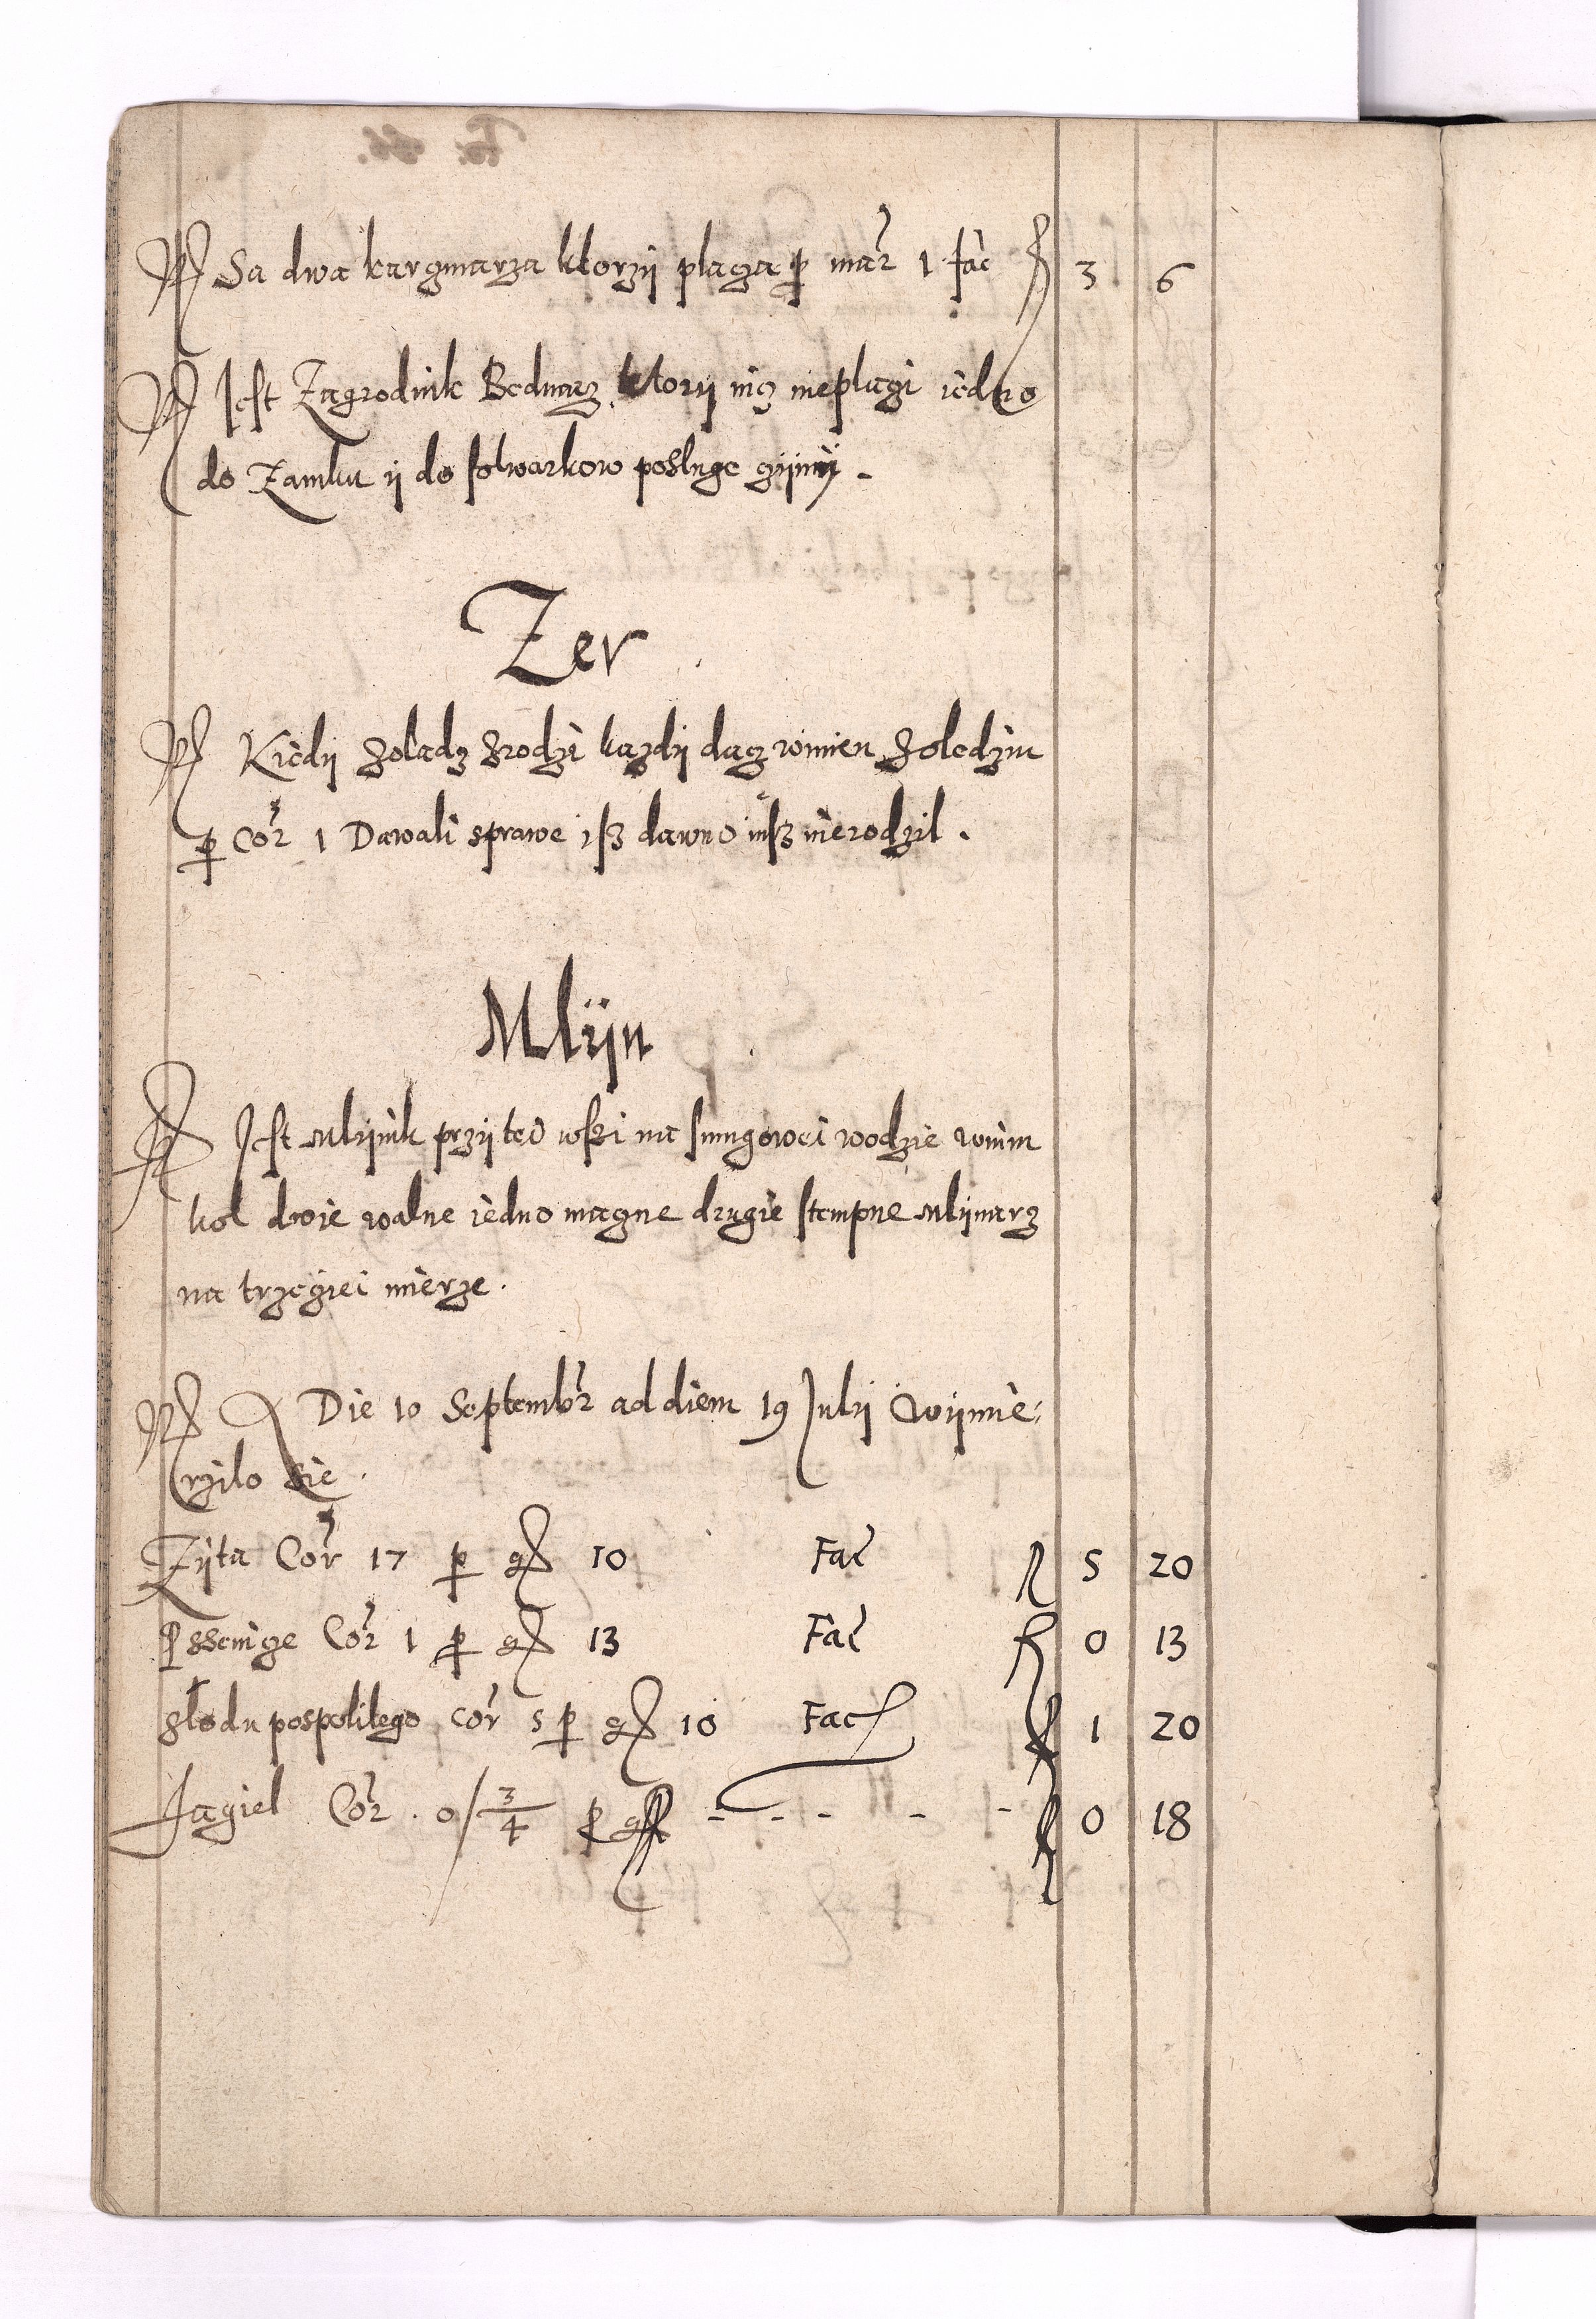 Sa dwa karczmarza ktorzÿ placza ꝑ mar 1 fac f 3 6
Jest Zagrodnik Bednarz, ktorÿ nicz nieplaci iedno
do Zamku ÿ do folwarkow posluge czÿnÿ.
Zer
Kiedÿ zoladz zrodzi kazdÿ dacz winien zoledziu
ꝑ Cor 1 Dawali sprawe isz dawno iusz nierodzil.
Mlÿn
Jest Mlÿnik przÿ tei wszi na smugowei wodzie wnim
kol dwoie walne iedno maczne drugie stempne Mlÿnarz
na trzeciei mierze.
Die 10 Septembr ad diem 19 Julÿ Wÿmie:
rzilo sie.
Zÿta Cor 17 ꝑ g 10 Fac f 5 20
Psenicze Cor 1 ꝑ g 13 Fac f 0 13
slodu pospolitego cor 5 ꝑ g 10 Fac f 1 20
Jagiel Cor. 0/ 3/4 ꝑ g - - - - - f 0 18